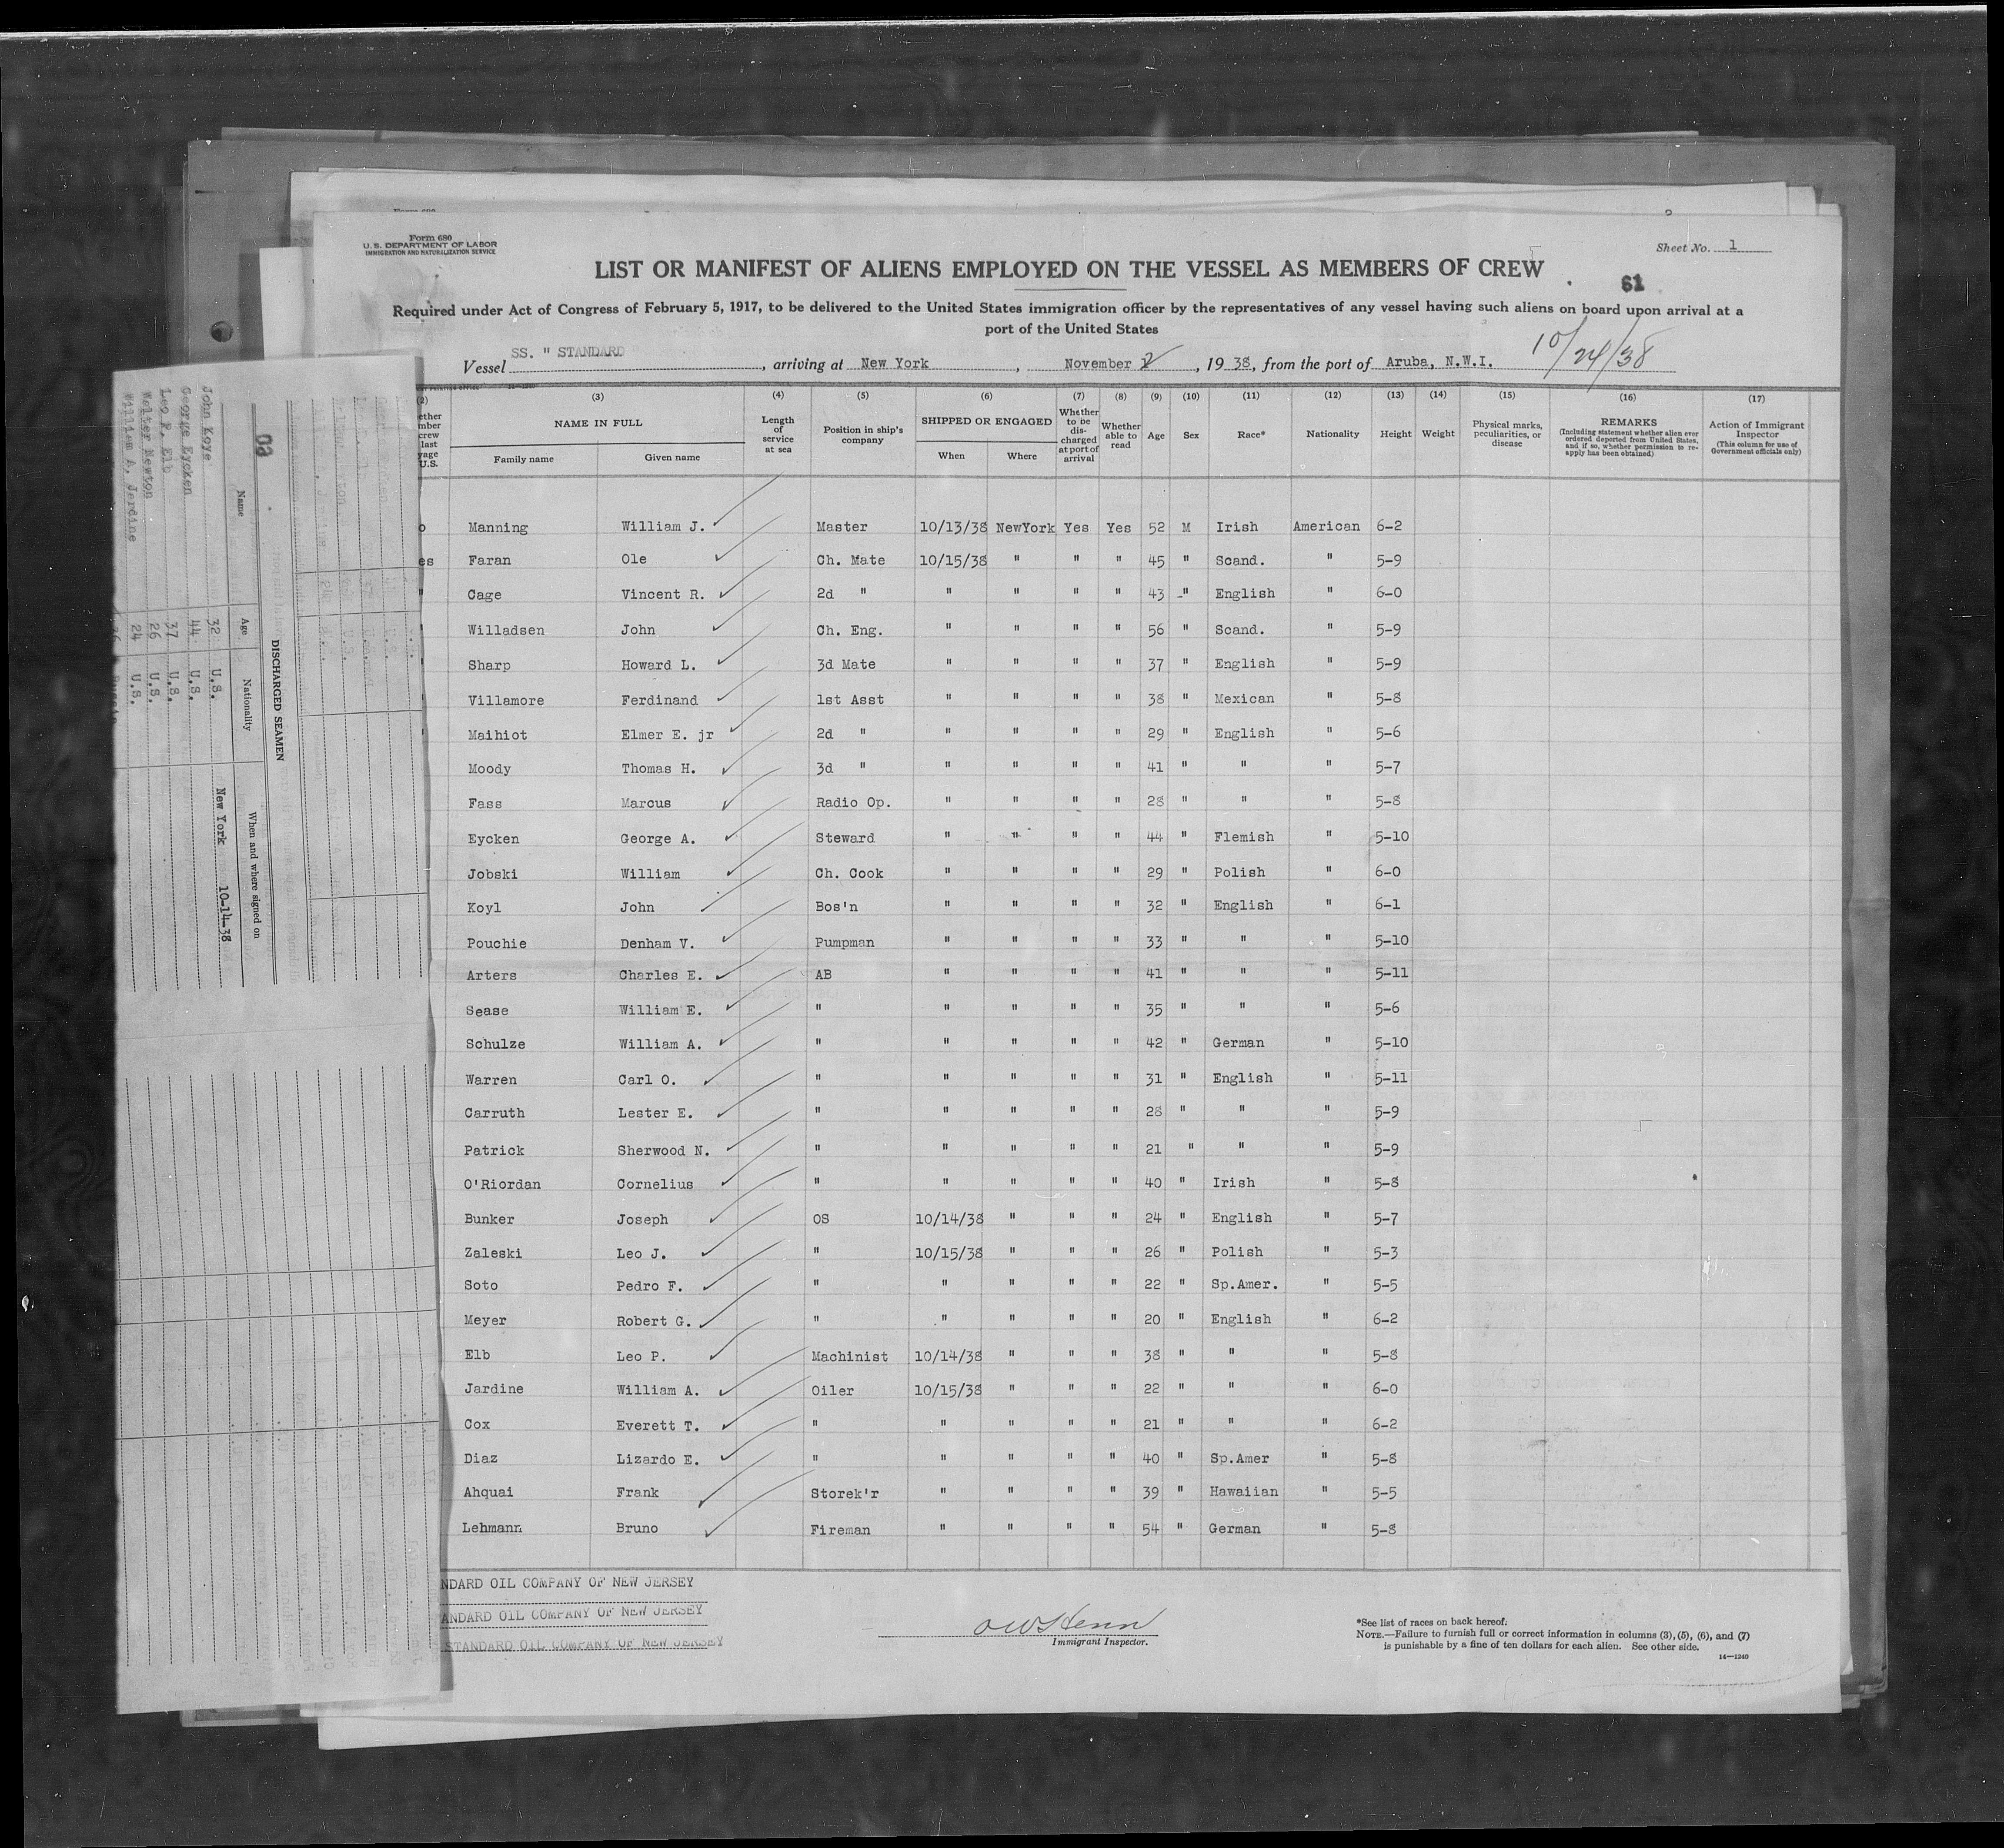 Form 680
U. S. DEPARTMENT OF LABOR
IMMIGRATION AND NATURALIZATION SERVICE
Sheet No. 1
LIST OR MANIFEST OF ALIENS EMPLOYED ON THE VESSEL AS MEMBERS OF CREW
61
Required under Act of Congress of February 5, 1917, to be delivered to the United States immigration officer by the representatives of any vessel having such aliens on board upon arrival at a
port of the United States
Vessel SS. " STANDARD, arriving at New York, November 2, 1938, from the port of Aruba, N.W.I. 10/24/38
(2) (3) (4) (5) (6) (7) (8) (9) (10) (11) (12) (13) (14) (15) (16) (17)
NAME IN FULL
Family name Given name
Length of service at sea
Position in ship's company
SHIPPED OR ENGAGED
When Where
Whether to be discharged at port of arrival
Whether able to read
Age
Sex
Race*
Nationality
Height
Weight
Physical marks, peculiarities, or disease
REMARKS
(Including statement whether alien ever ordered deported from United States, and if so, whether permission to reapply has been obtained)
Action of Immigrant Inspector
(This column for use of Government officials only)
o Manning William J. Master 10/13/38 NewYork Yes Yes 52 M Irish American 6-2
es Faran Ole Ch. Mate 10/15/38 " " " 45 " Scand. " 5-9
" Cage Vincent R. 2d " " " " " 43 " English " 6-0
Willadsen John Ch. Eng. " " " " 56 " Scand. " 5-9
Sharp Howard L. 3d Mate " " " " 37 " English " 5-9
Villamore Ferdinand 1st Asst " " " " 38 " Mexican " 5-8
Maihiot Elmer E. jr 2d " " " " " 29 " English " 5-6
Moody Thomas H. 3d " " " " " 41 " " " 5-7
Fass Marcus Radio Op. " " " " 28 " " " 5-8
Eycken George A. Steward " " " " 44 " Flemish " 5-10
Jobski William Ch. Cook " " " " 29 " Polish " 6-0
Koyl John Bos'n " " " " 32 " English " 6-1
Pouchie Denham V. Pumpman " " " " 33 " " " 5-10
Arters Charles E. AB " " " " 41 " " " 5-11
Sease William E. " " " " " 35 " " " 5-6
Schulze William A. " " " " " 42 " German " 5-10
Warren Carl O. " " " " " 31 " English " 5-11
Carruth Lester E. " " " " " 28 " " " 5-9
Patrick Sherwood N. " " " " " 21 " " " 5-9
O'Riordan Cornelius " " " " " 40 " Irish " 5-8
Bunker Joseph OS 10/14/38 " " " 24 " English " 5-7
Zaleski Leo J. " 10/15/38 " " " 26 " Polish " 5-3
Soto Pedro F. " " " " " 22 " Sp.Amer. " 5-5
Meyer Robert G. " " " " " 20 " English " 6-2
Elb Leo P. Machinist 10/14/38 " " " 38 " " " 5-8
Jardine William A. Oiler 10/15/38 " " " 22 " " " 6-0
Cox Everett T. " " " " " 21 " " " 6-2
Diaz Lizardo E. " " " " " 40 " Sp.Amer " 5-8
Ahquai Frank Storek'r " " " " 39 " Hawaiian " 5-5
Lehmann Bruno Fireman " " " " 54 " German " 5-8
NDARD OIL COMPANY OF NEW JERSEY
ANDARD OIL COMPANY OF NEW JERSEY
STANDARD OIL COMPANY OF NEW JERSEY
Immigrant Inspector.
*See list of races on back hereof.
NOTE.—Failure to furnish full or correct information in columns (3), (5), (6), and (7)
is punishable by a fine of ten dollars for each alien. See other side.
14—1240
DISCHARGED SEAMEN
Name Age Nationality When and where signed on
John Koye 32 U.S. New York 10-14-38
George Eycken 44 U.S.
Leo P. Elb 37 U.S.
Walter Newton 26 U.S.
William A. Jardine 24 U.S.